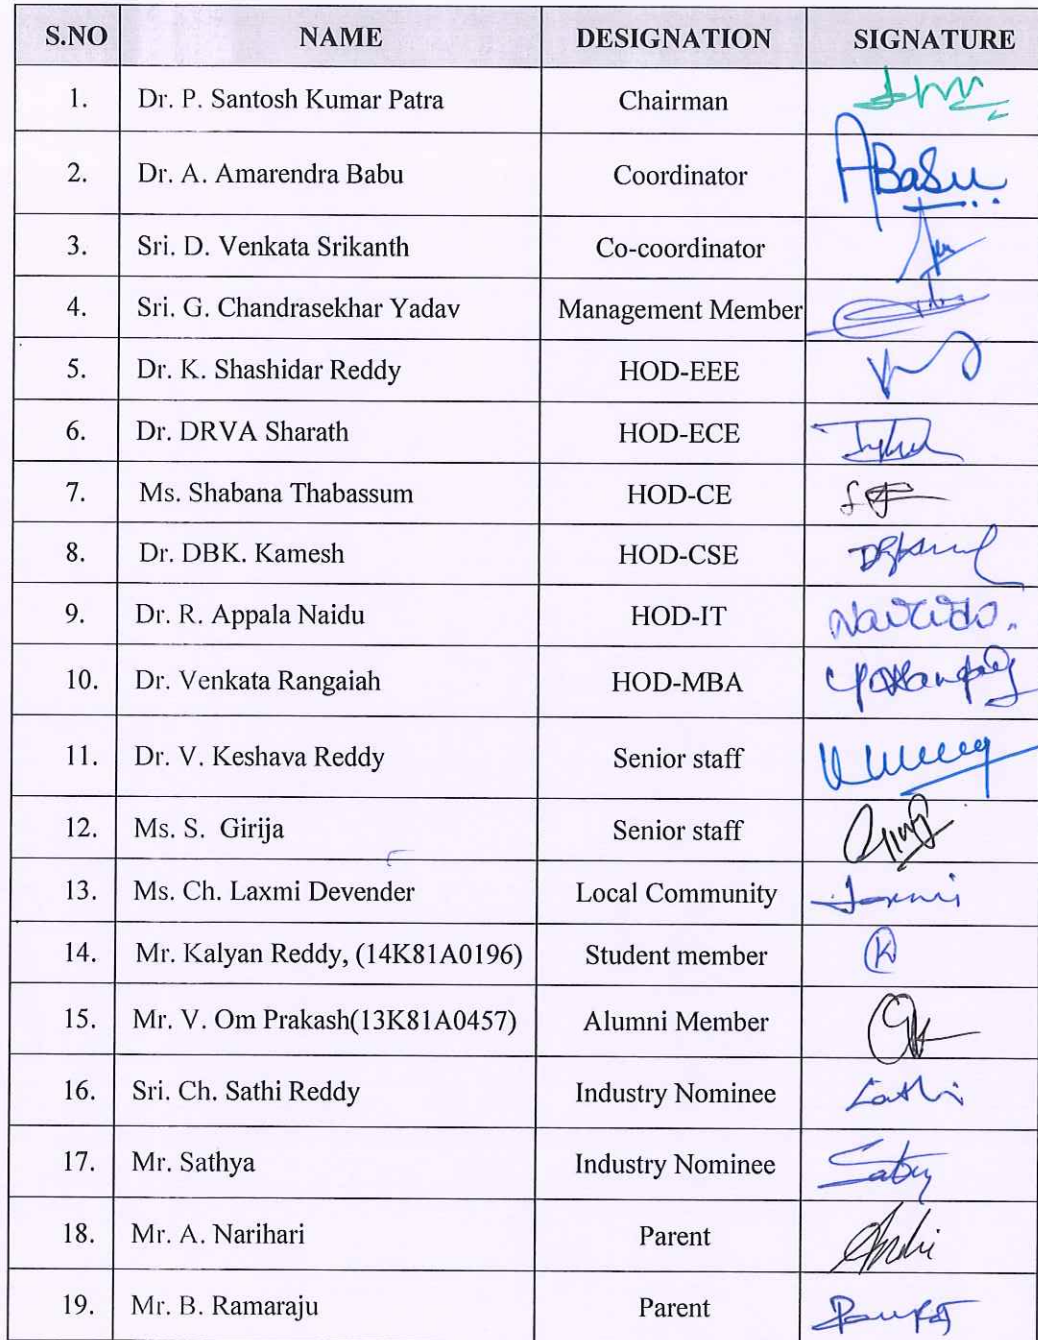 S.NO NAME DESIGNATION SIGNATURE
1. Dr. P. Santosh Kumar Patra Chairman
2. Dr. A. Amarendra Babu Coordinator ABabu
3. Sri. D. Venkata Srikanth Co-coordinator
4. Sri. G. Chandrasekhar Yadav Management Member
5. Dr. K. Shashidar Reddy HOD-EEE
6. Dr. DRVA Sharath HOD-ECE
7. Ms. Shabana Thabassum HOD-CE
8. Dr. DBK. Kamesh HOD-CSE
9. Dr. R. Appala Naidu HOD-IT
10. Dr. Venkata Rangaiah HOD-MBA
11. Dr. V. Keshava Reddy Senior staff
12. Ms. S. Girija Senior staff
13. Ms. Ch. Laxmi Devender Local Community
14. Mr. Kalyan Reddy, (14K81A0196) Student member K
15. Mr. V. Om Prakash(13K81A0457) Alumni Member
16. Sri. Ch. Sathi Reddy Industry Nominee
17. Mr. Sathya Industry Nominee
18. Mr. A. Narihari Parent
19. Mr. B. Ramaraju Parent